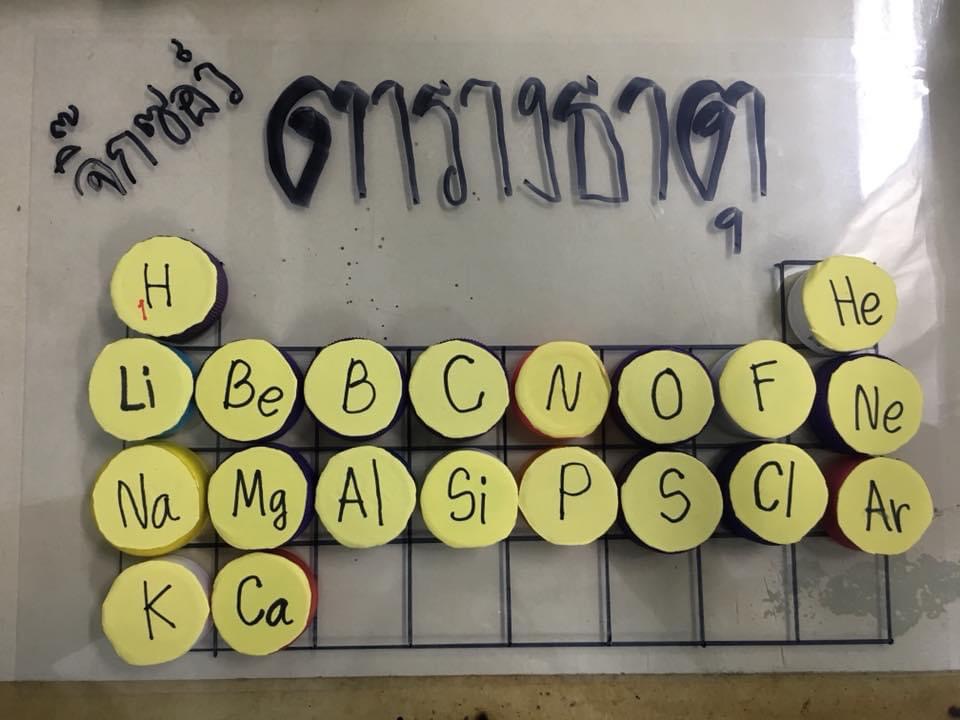 จิ๊กซอว์
ตารางธาตุ
H He
1
Li Be B C N O F Ne
Na Mg Al Si P S Cl Ar
K Ca